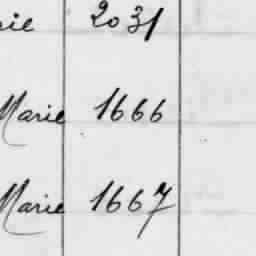 rie 2031
Marie 1666
Marie 1667